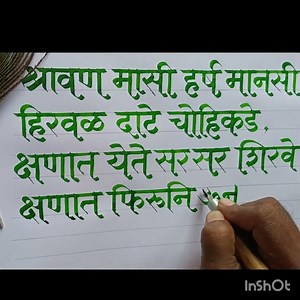 श्रावण मासी हर्ष मानसी
हिरवळ दाटे चोहिकडे,
क्षणात येते सरसर शिरवे
क्षणात फिरुनि
InShOt